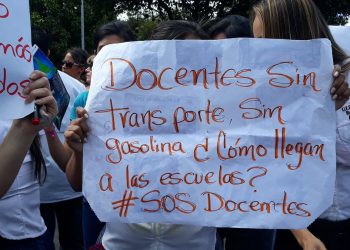 más
dos
Docentes Sin
transporte, Sin
gasolina ¿Cómo llegan
a las escuelas?
#SOS Docentes